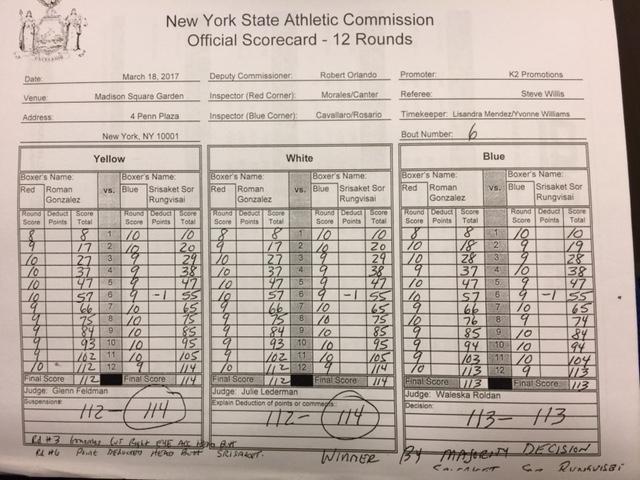 New York State Athletic Commission
Official Scorecard - 12 Rounds
EXCELSIOR
Date: March 18, 2017 Deputy Commissioner: Robert Orlando Promoter: K2 Promotions
Venue: Madison Square Garden Inspector (Red Corner): Morales/Canter Referee: Steve Willis
Address: 4 Penn Plaza Inspector (Blue Corner): Cavallaro/Rosario Timekeeper: Lisandra Mendez/Yvonne Williams
New York, NY 10001 Bout Number: 6
Yellow White Blue
Boxer's Name: Boxer's Name: Boxer's Name: Boxer's Name: Boxer's Name: Boxer's Name:
Red Roman Gonzalez vs. Blue Srisaket Sor Rungvisai Red Roman Gonzalez vs. Blue Srisaket Sor Rungvisai Red Roman Gonzalez vs. Blue Srisaket Sor Rungvisai
Round Score Deduct Points Score Total Round Score Deduct Points Score Total Round Score Deduct Points Score Total Round Score Deduct Points Score Total Round Score Deduct Points Score Total Round Score Deduct Points Score Total
8 8 1 10 10 8 8 1 10 10 8 8 1 10 10
9 17 2 10 20 9 17 2 10 20 10 18 2 9 19
10 27 3 9 29 10 27 3 9 29 10 28 3 9 28
10 37 4 9 38 10 37 4 9 38 9 37 4 10 38
10 47 5 9 47 10 47 5 9 47 10 47 5 9 47
10 57 6 9 -1 55 10 57 6 9 -1 55 10 57 6 9 -1 55
9 66 7 10 65 9 66 7 10 65 9 66 7 10 65
9 75 8 10 75 9 75 8 10 75 10 76 8 9 74
9 84 9 10 85 9 84 9 10 85 9 85 9 10 84
9 93 10 10 95 9 93 10 10 95 9 94 10 10 94
9 102 11 10 105 9 102 11 10 105 9 103 11 10 104
10 112 12 9 114 10 112 12 9 114 10 113 12 9 113
Final Score 112 Final Score 114 Final Score 112 Final Score 114 Final Score 113 Final Score 113
Judge: Glenn Feldman Judge: Julie Lederman Judge: Waleska Roldan
Suspensions: Explain Deduction of points or comments: Decision:
112 - 114 112 - 114 113 - 113
Rd #3 Gonzalez Cut Right EYE Acc HEAD Butt
Rd #6 Point Deducted HEAD Butt SRISAKET.
WINNER BY MAJORITY DECISION
SRISAKET Sor RUNGVISAI